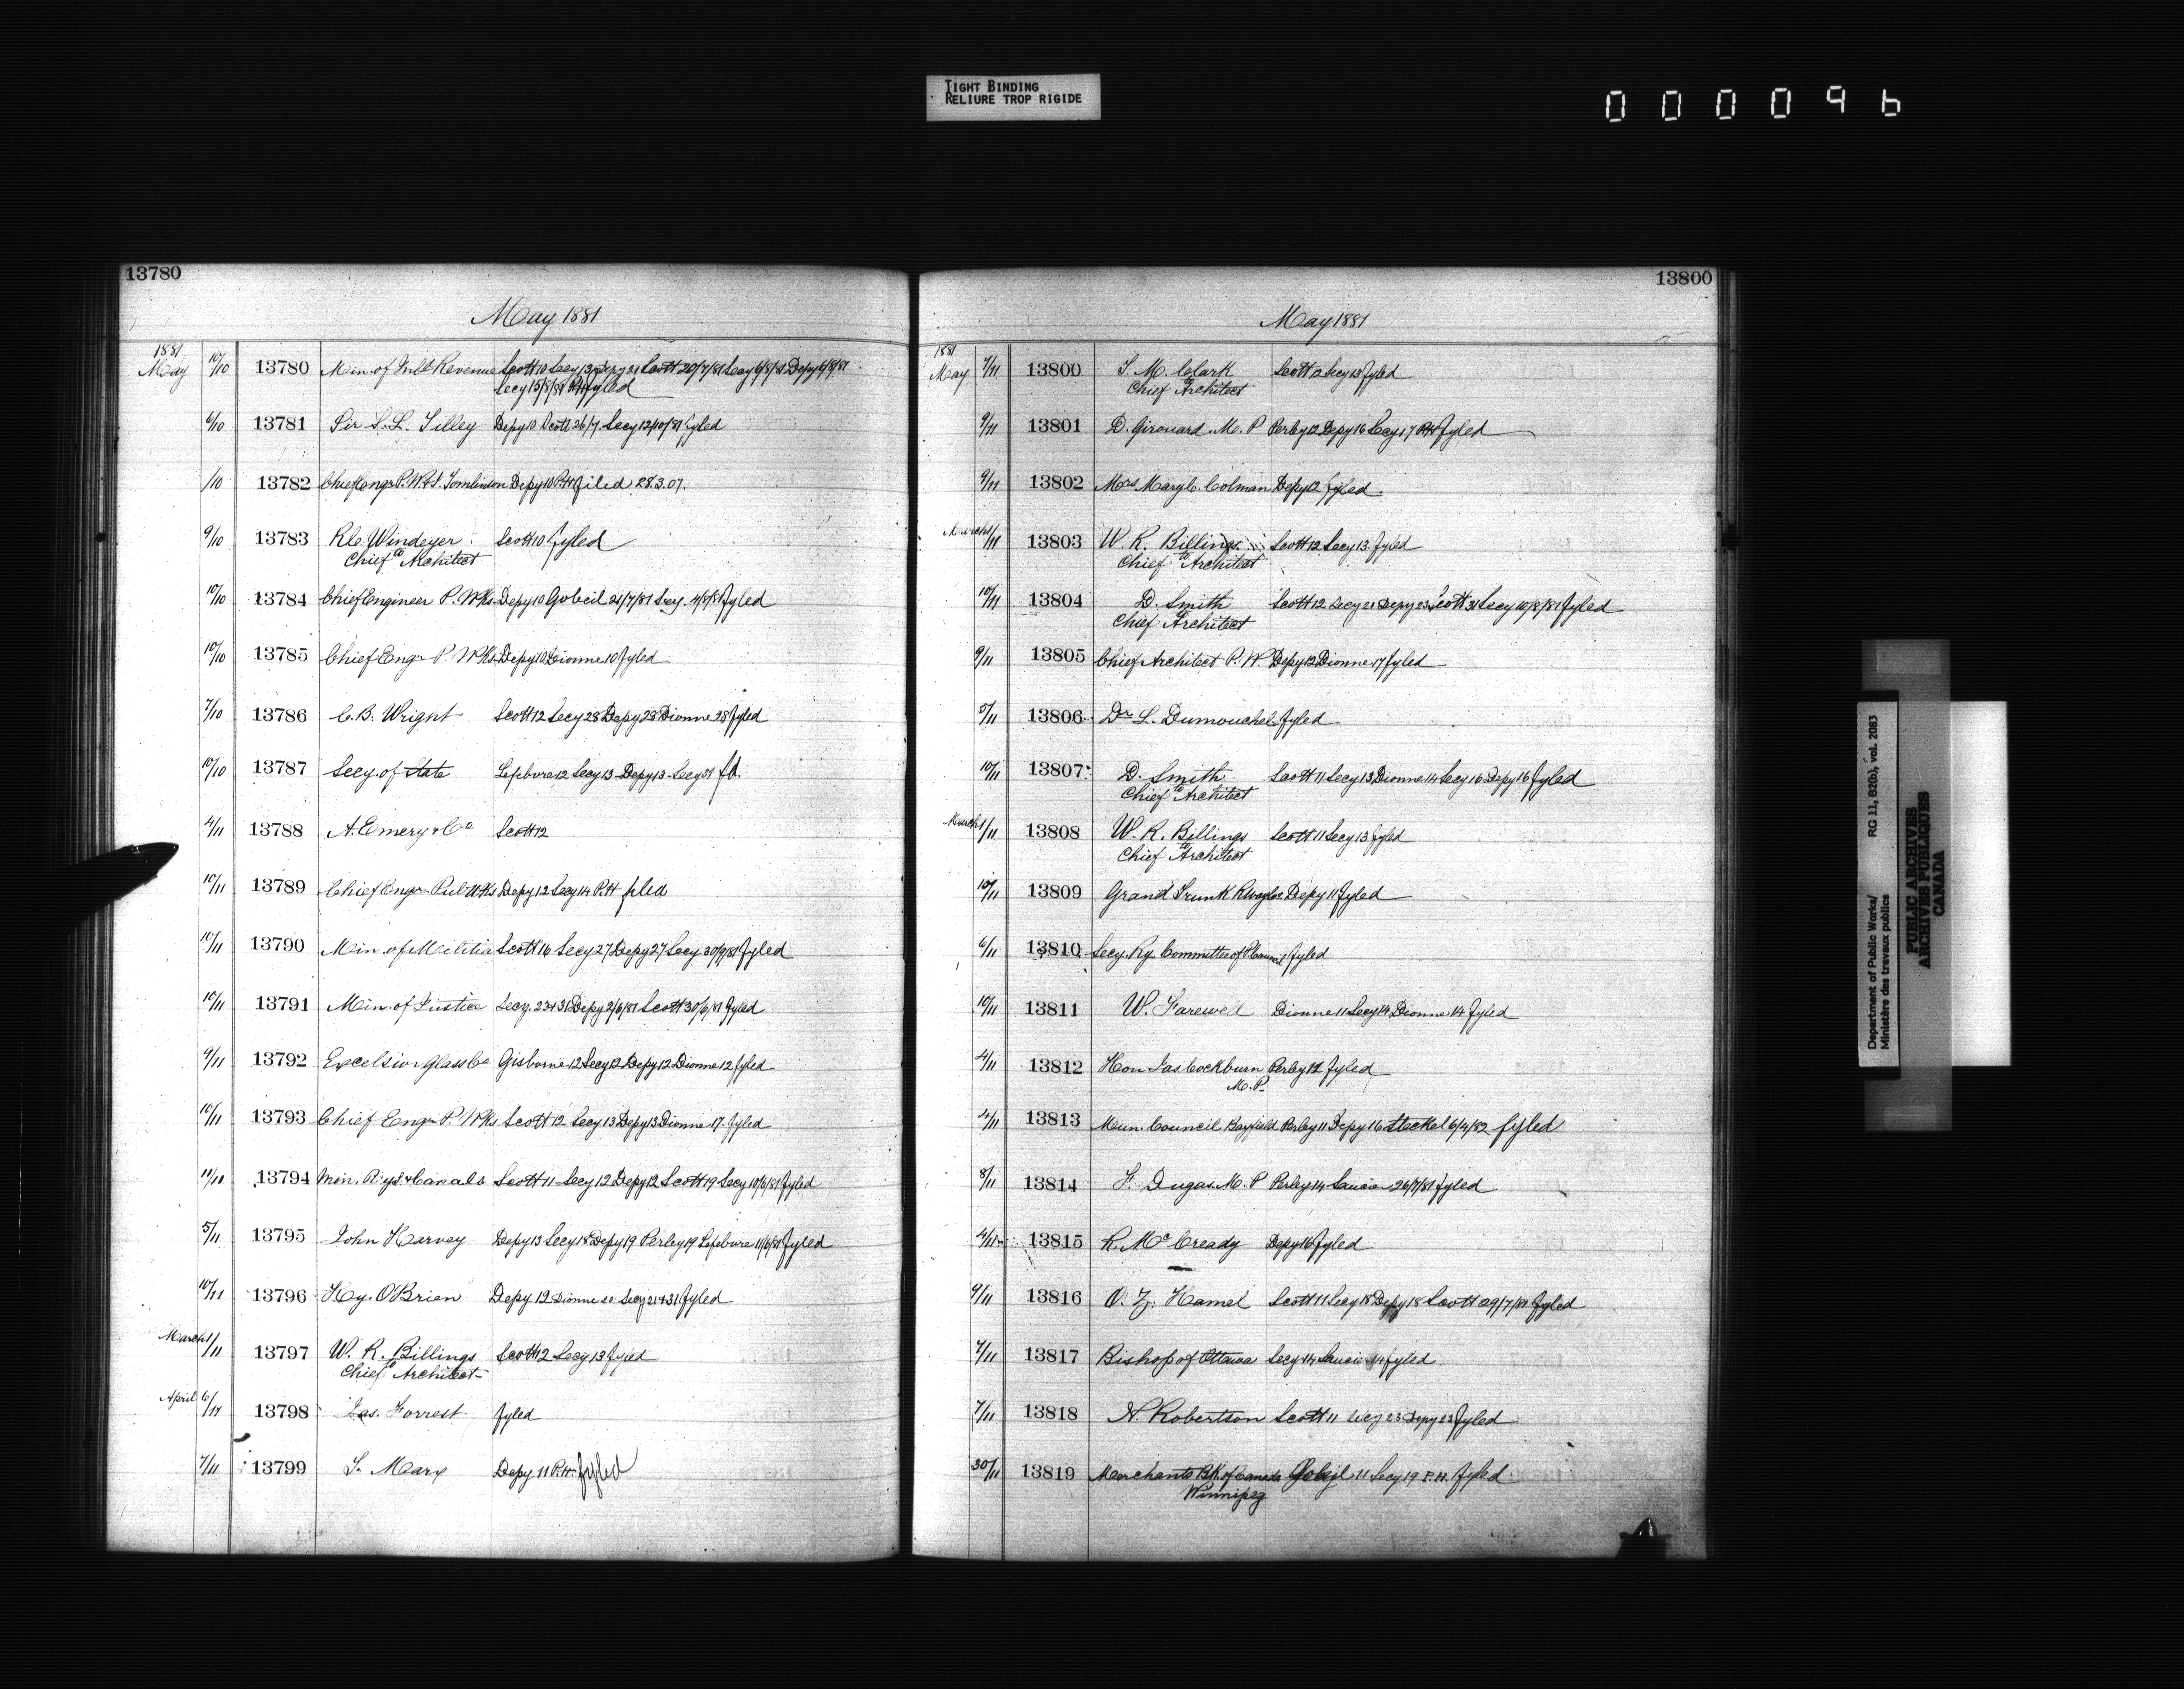 TIGHT BINDING
RELIURE TROP RIGIDE
000096
13780
May 1881
1881
May 10/10 13780 Min. of Inld Revenue Scott 10 Secy 13 Depy 21 Scott 20/7/81 Secy 6/8/81 Depy 6/8/81
Secy 15/8/81 P.H. fyled
6/10 13781 Sir S. L. Tilley Depy 10 Scott 26/7 Secy 12/10/81 fyled
/10 13782 Chief Engr P. Wks. Tomlinson Depy 10 P.H filed 28.3.07.
9/10 13783 R.C. Windeyer Scott 10 fyled
to
Chief Architect
10/10 13784 Chief Engineer P. Wks. Depy 10 Gobeil 21/7/81 Secy. 4/8/81 fyled
10/10 13785 Chief Engr P. Wks. Depy 10 Dionne 10 fyled
7/10 13786 C. B. Wright Scott 12 Secy 28 Depy 28 Dionne 28 fyled
10/10 13787 Secy. of State Lefebvre 12 Secy 13 Depy 13 Secy 31 fd.
4/11 13788 A. Emery & Co Scott 12
10/11 13789 Chief Engr Pub Wks Depy 12 Secy 14 P.H filed
10/11 13790 Min. of Militia Scott 16 Secy 27 Depy 27 Secy 30/9/81 fyled
10/11 13791 Min. of Justice Secy. 23 & 31 Depy 2/6/81 Scott 30/6/81 fyled
9/11 13792 Excelsior Glass Co Gisborne 12 Secy 12 Depy 12 Dionne 12 fyled
10/11 13793 Chief Engr P. Wks Scott 12 Secy 13 Depy 13 Dionne 17. fyled
11/11 13794 Min. Rys. & Canals Scott 11 Secy 12 Depy 12 Scott 19 Secy 10/6/81 fyled
5/11 13795 John Harvey Depy 13 Secy 18 Depy 19 Perley 19 Lefebvre 11/6/81 fyled
10/11 13796 Hy. O'Brien Depy 12 Dionne 20 Secy 21 & 31 fyled
March 1/11 13797 W. R. Billings Scott 12 Secy 13 fyled
to
Chief Architect
April 6/11 13798 Jas. Forrest fyled
7/11 13799 T. Marx Depy 11 P.H. fyled
13800
May 1881
1881
May 7/11 13800 T. M. Clark Scott 12 Secy 13 fyled
to
Chief Architect
9/11 13801 D. Girouard M. P Perley 12 Depy 16 Secy 17 P.H fyled
9/11 13802 Mrs Mary C. Colman Depy 12 fyled.
March 1/11 13803 W. R. Billings Scott 12 Secy 13. fyled
to
Chief Architect
10/11 13804 D. Smith Scott 12 Secy 21 Depy 23 Scott 31 Secy 10/8/81 fyled
to
Chief Architect
9/11 13805 Chief Architect P. W. Depy 12 Dionne 17 fyled
5/11 13806 Dr L. Dumouchel fyled
10/11 13807 D. Smith Scott 11 Secy 13 Dionne 14 Secy 16 Depy 16 fyled
to
Chief Architect
March 1/11 13808 W. R. Billings Scott 11 Secy 13 fyled
to
Chief Architect
10/11 13809 Grand Trunk Rway Co Depy 11 fyled
6/11 13810 Secy. Ry. Committee of P. Council fyled
10/11 13811 W. Farewell Dionne 11 Secy 14 Dionne 14 fyled
4/11 13812 Hon Jas Cockburn Perley 12 fyled
M.P.
4/11 13813 Mun. Council Bayfield Perley 11 Depy 16 Steckel 6/4/82 fyled
8/11 13814 F. Dugas M. P Perley 14 Saucier 26/7/81 fyled
4/11 13815 R. McCready Depy 16 fyled
9/11 13816 O. Z. Hamel Scott 11 Secy 18 Depy 18 Scott 29/7/81 fyled
7/11 13817 Bishop of Ottawa Secy 14 Saucier 14 fyled
7/11 13818 N. Robertson Scott 11 Secy 23 Depy 23 fyled
30/11 13819 Merchants Bk. of Canada Gobeil 11 Secy 19 P.H. fyled
Winnipeg
Department of Public Works/ RG 11, B2(b), vol. 2083
Ministère des travaux publics
PUBLIC ARCHIVES
ARCHIVES PUBLIQUES
CANADA